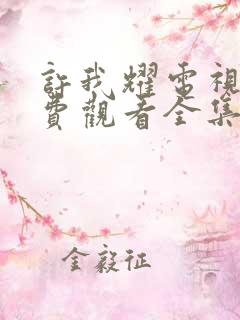 許我耀電視
費觀看全集
金毅征